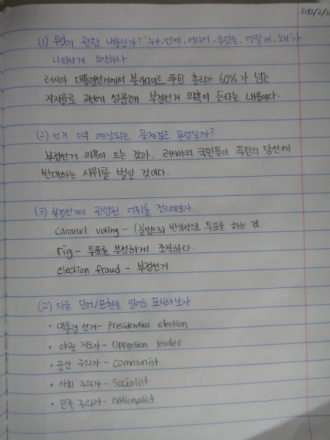 (1) 무엇에 관한 내용인가? '누가, 언제, 어디서, 무엇을, 어떻게, 왜'가
나타나게 요약하라
러시아 대통령선거에서 블라디미르 푸틴 총리가 60%가 넘는
지지율로 당선에 성공해 부정선거 의혹이 든다는 내용이다.
(2) 선거 이후 예상되는 문제점은 무엇일까?
부정선거 의혹이 드는 것과, 러시아의 국민들이 푸틴의 당선에
반대하는 시위를 벌일 것이다.
(3) 부정선거에 관련된 어휘를 정리해보자.
carousel voting - (불법으로) 반복적으로 투표를 하는 것
rig - 투표를 부정하게 조작하다.
election fraud - 부정선거
(2) 다음 단어/표현을 영어로 표현해보자
• 대통령 선거 - Presidential election
• 야권 지도자 - Opposition leader
• 공산 주의자 - communist
• 사회 주의자 - Socialist
• 민족 주의자 - nationalist